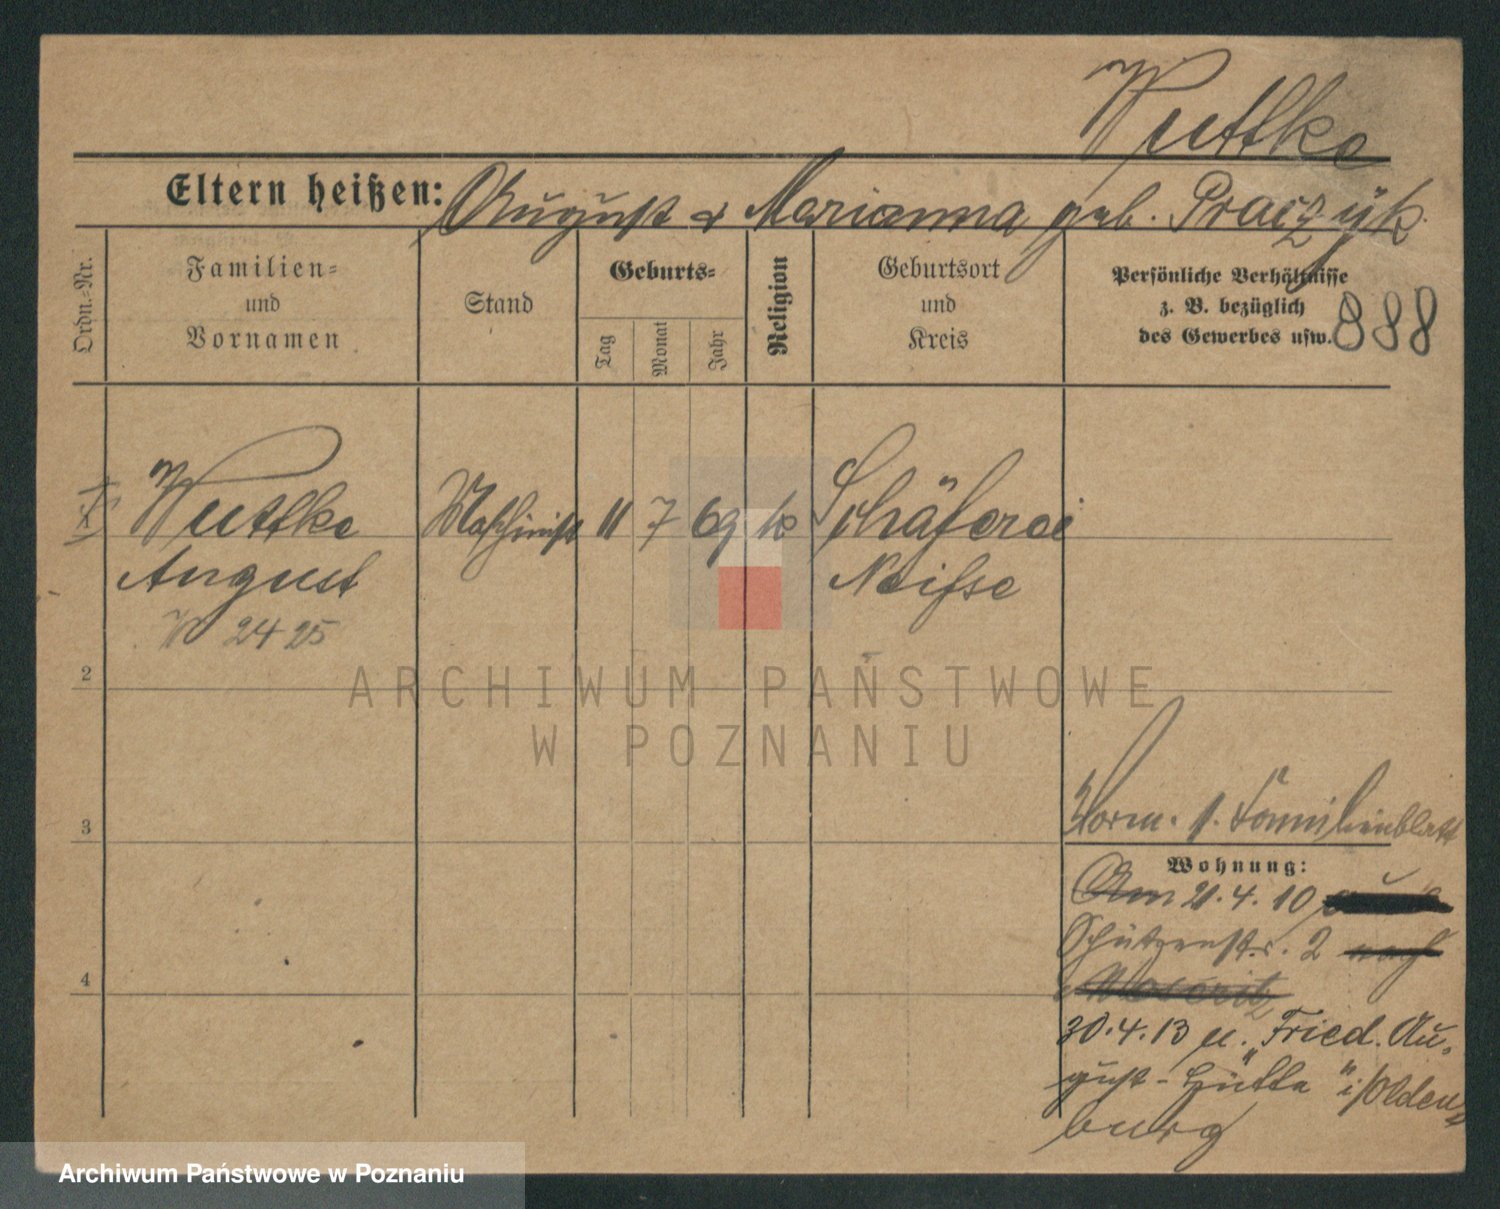 Wuttke
Eltern heißen: August & Marianna geb. Praczyk
Ordn.-Nr.
Familien-
und
Vornamen
Stand
Geburts-
Tag
Monat
Jahr
Religion
Geburtsort
und
Kreis
Persönliche Verhältnisse
z. B. bezüglich
des Gewerbes usw.
888
Wuttke Maschinist 11 7 69 k Schäferei
August Neisse
2425
2
ARCHIWUM PAŃSTWOWE
W POZNANIU
3
Verm. s. Familienblatt
Wohnung:
Am 21.4.10
Schützenstr. 2 nach
4
30.4.13 n. "Fried. Au-
gust-Hütte" i/Olden-
burg
Archiwum Państwowe w Poznaniu